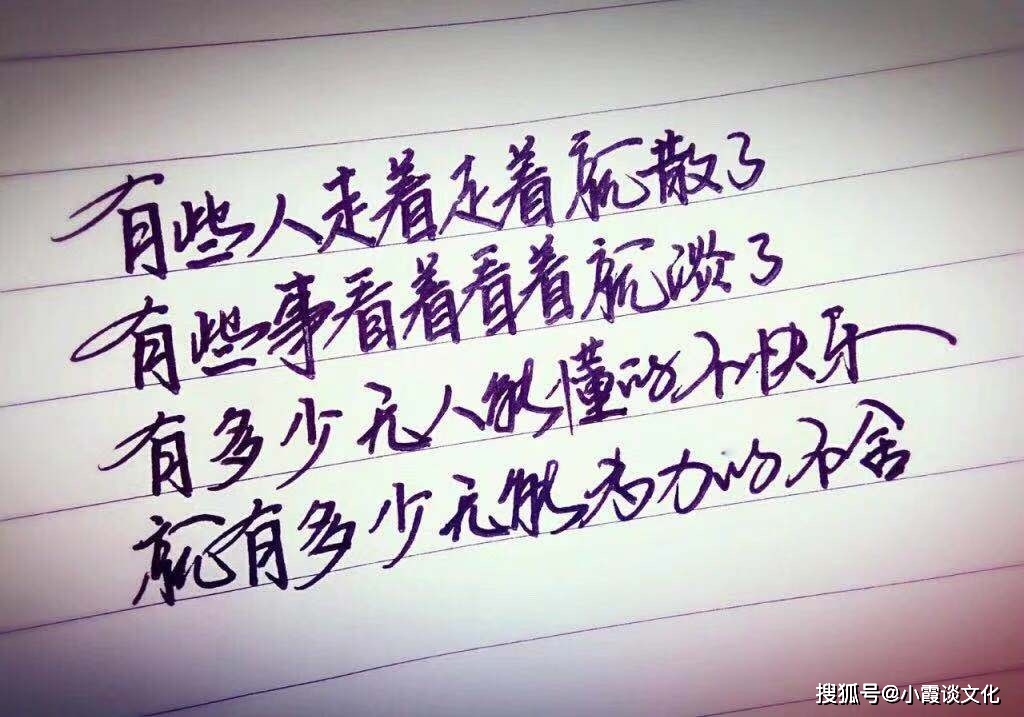 有些人走着走着就散了
有些事看着看着就淡了
有多少无人能懂的不快乐
就有多少无能为力的不舍
搜狐号@小霞谈文化